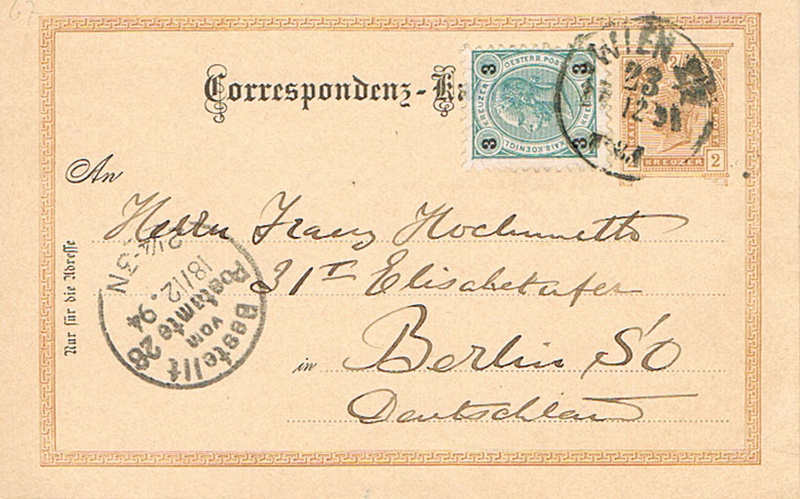 Correspondenz-Ka
3 OESTERR. POST 3
KREUZER
KREUZER
3 KAIS. KOENIGL. 3
WIEN
23
12
KREUZER 2
An
Herrn Franz
31 I Elisabetufer
in Berlin SO
Deutschland
Nur für die Adresse
Bestellt
vom
Postamte 28
18/12.94
2¼-3N